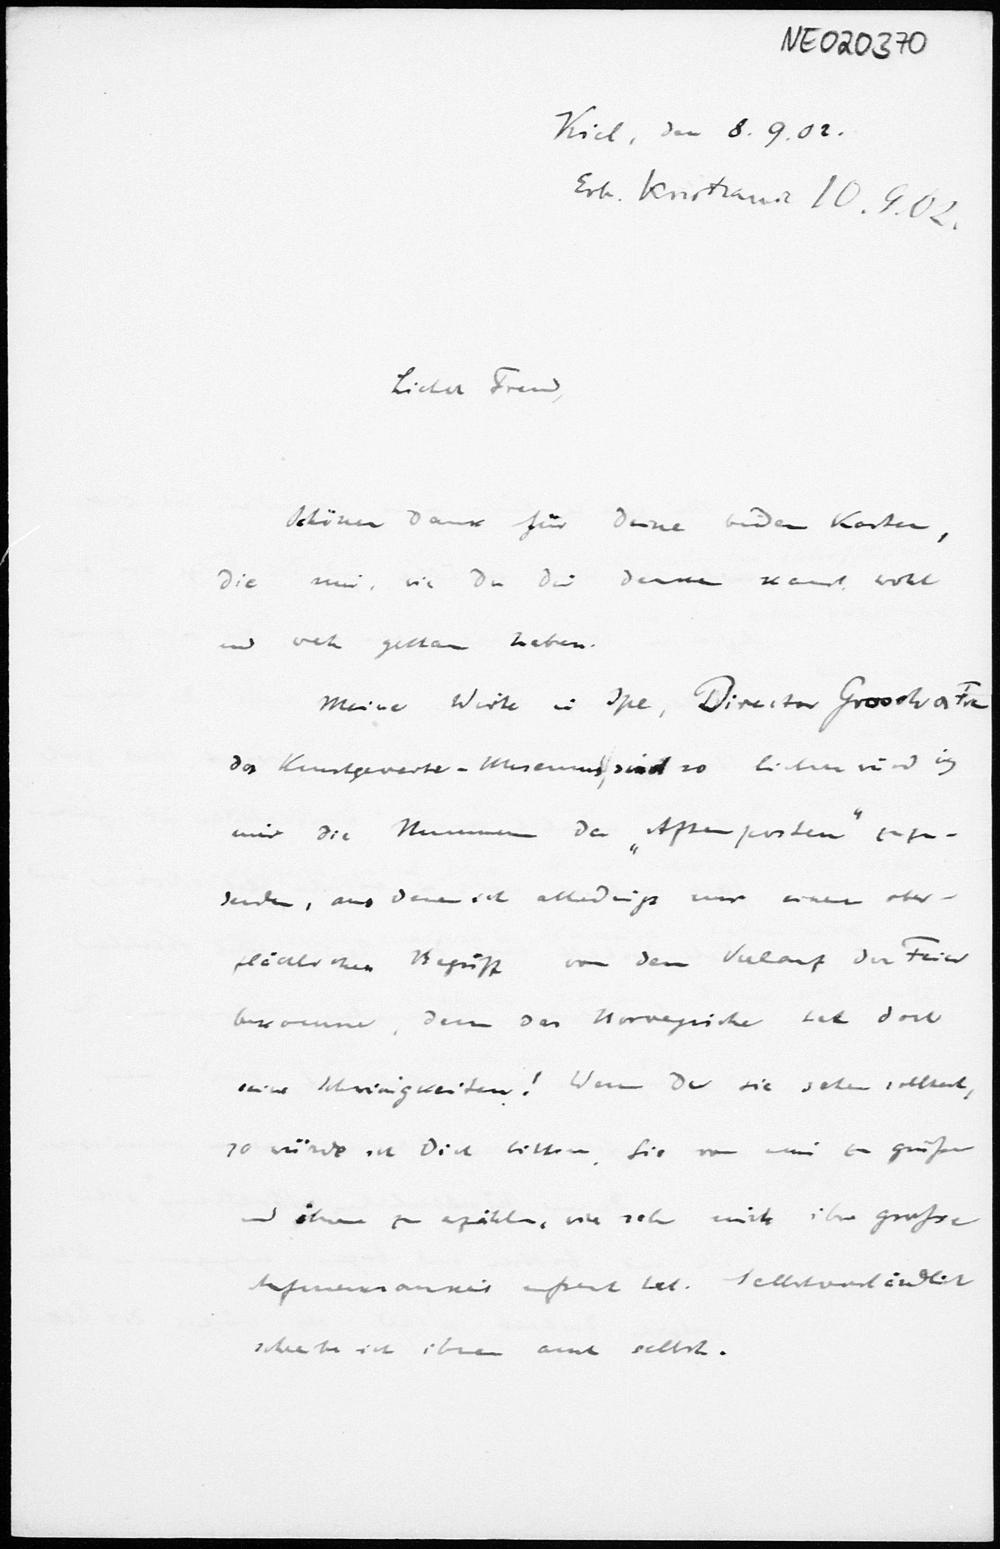 NE020370
Kiel, den 8. 9. 02.
Erh. Kristiania 10. 9. 02.
Lieber Freund,
Schönen Dank für Deine beiden Karten,
die mir, wie Du Dir denken kannst, wohl
und weh gethan haben.
Meine Wirte in Spe, Director Grosch u Frau
des Kunstgewerbe-Museums, sind so lieben
mir die Nummern der „Aftenposten" zuzu-
senden, aus denen ich allerdings nur einen ober-
flächlichen Begriff von dem Verlauf der Feier
bekomme, denn das Norwegische hat doch
seine Schwierigkeiten! Wenn Du sie sehen solltest,
so würde ich Dich bitten, sie von mir zu grüßen
und ihnen zu erzählen, wie sehr mich ihre große
Aufmerksamkeit erfreut hat. Selbstverständlich
schreibe ich ihnen auch selbst.